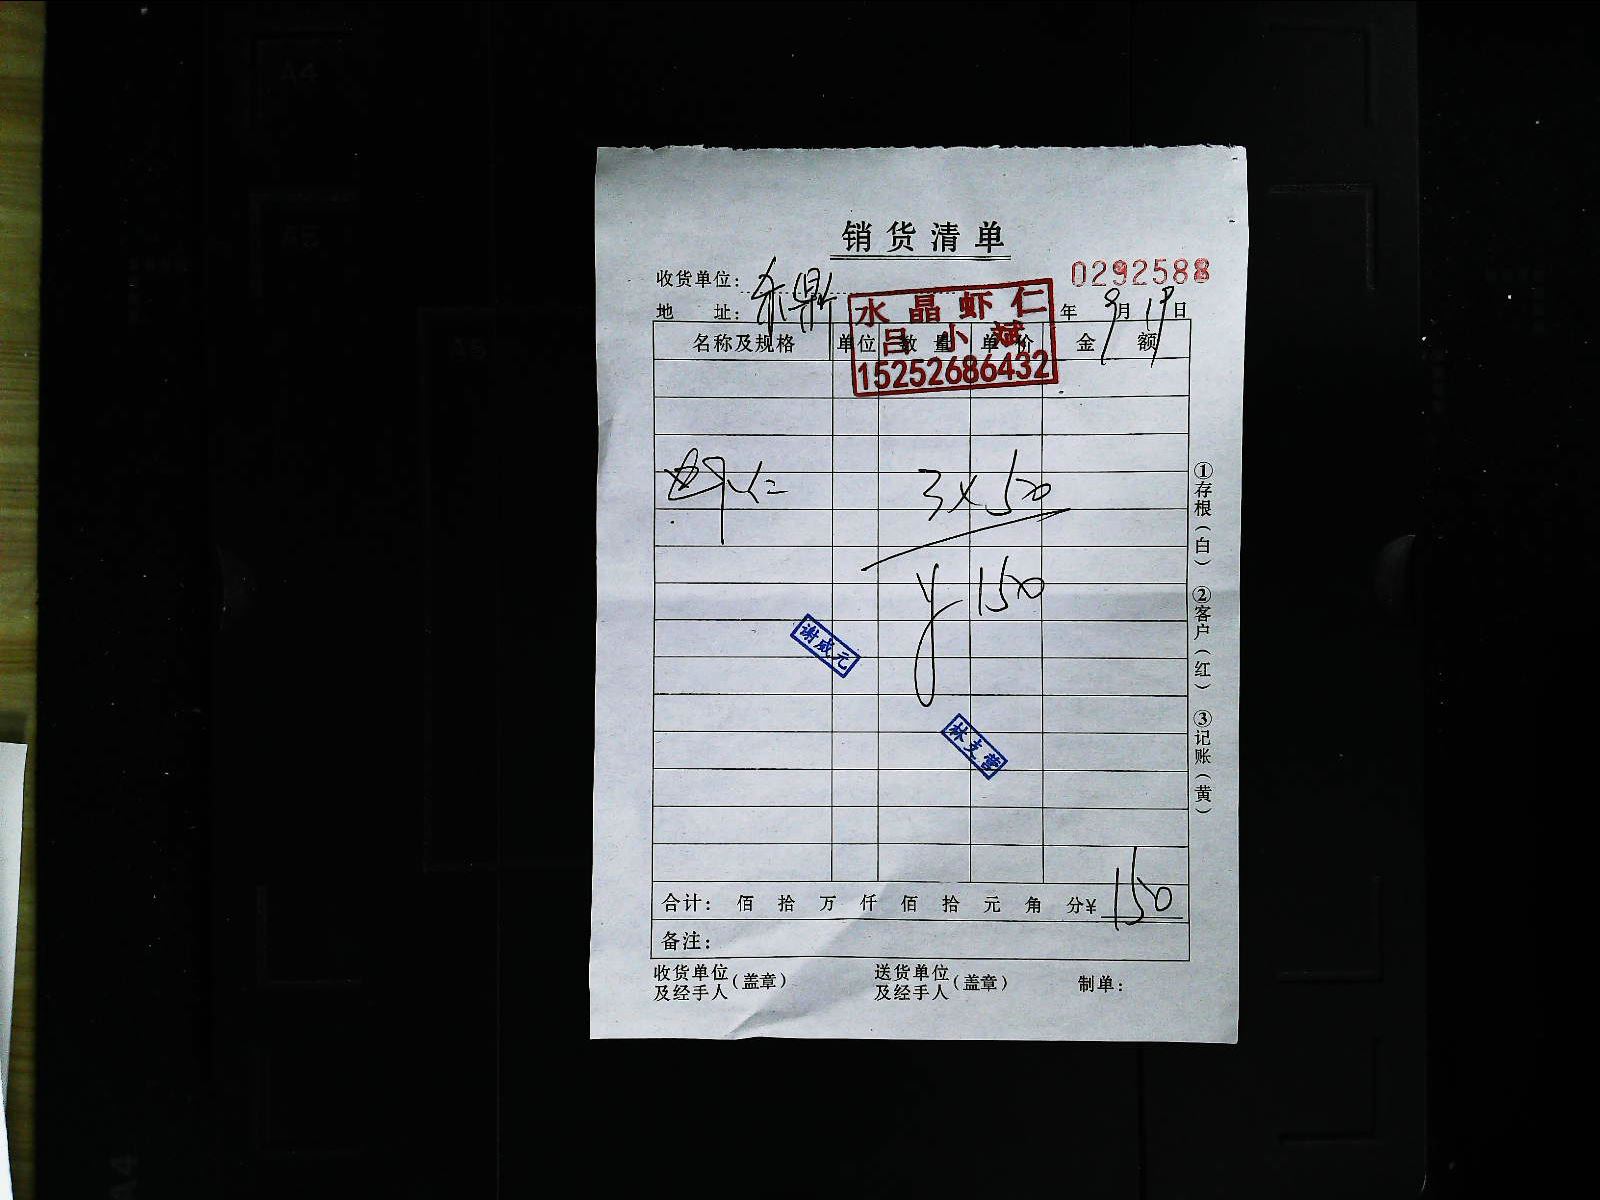 销货清单
0292588
收货单位:
地 址: 禾鼎 年 9月19日
水晶虾仁
吕小斌
15252686432
名称及规格 单位 数量 单价 金额
虾仁 3×50
¥150
谢成元
林支营
合计: 佰 拾 万 仟 佰 拾 元 角 分¥ 150
备注:
收货单位及经手人(盖章) 送货单位及经手人(盖章) 制单:
①存根(白) ②客户(红) ③记账(黄)
A4
A5
A4